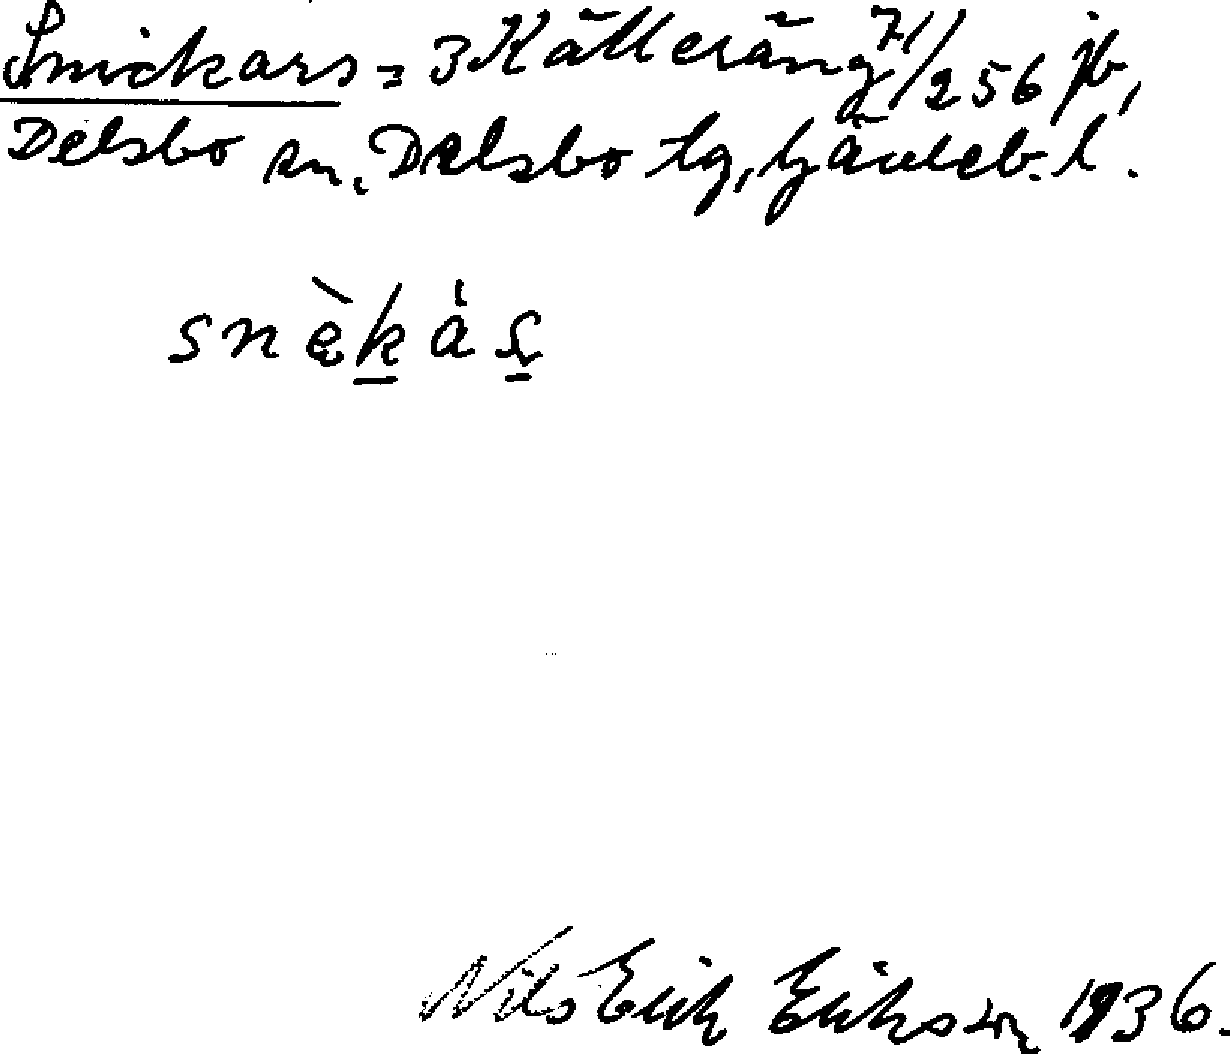 Snickars = 3 Källeräng 71/256 jb,
Delsbo sn, Delsbo tg, Gävleb. l.
snę̀kás̨
Nils Erik Erikson 1936.